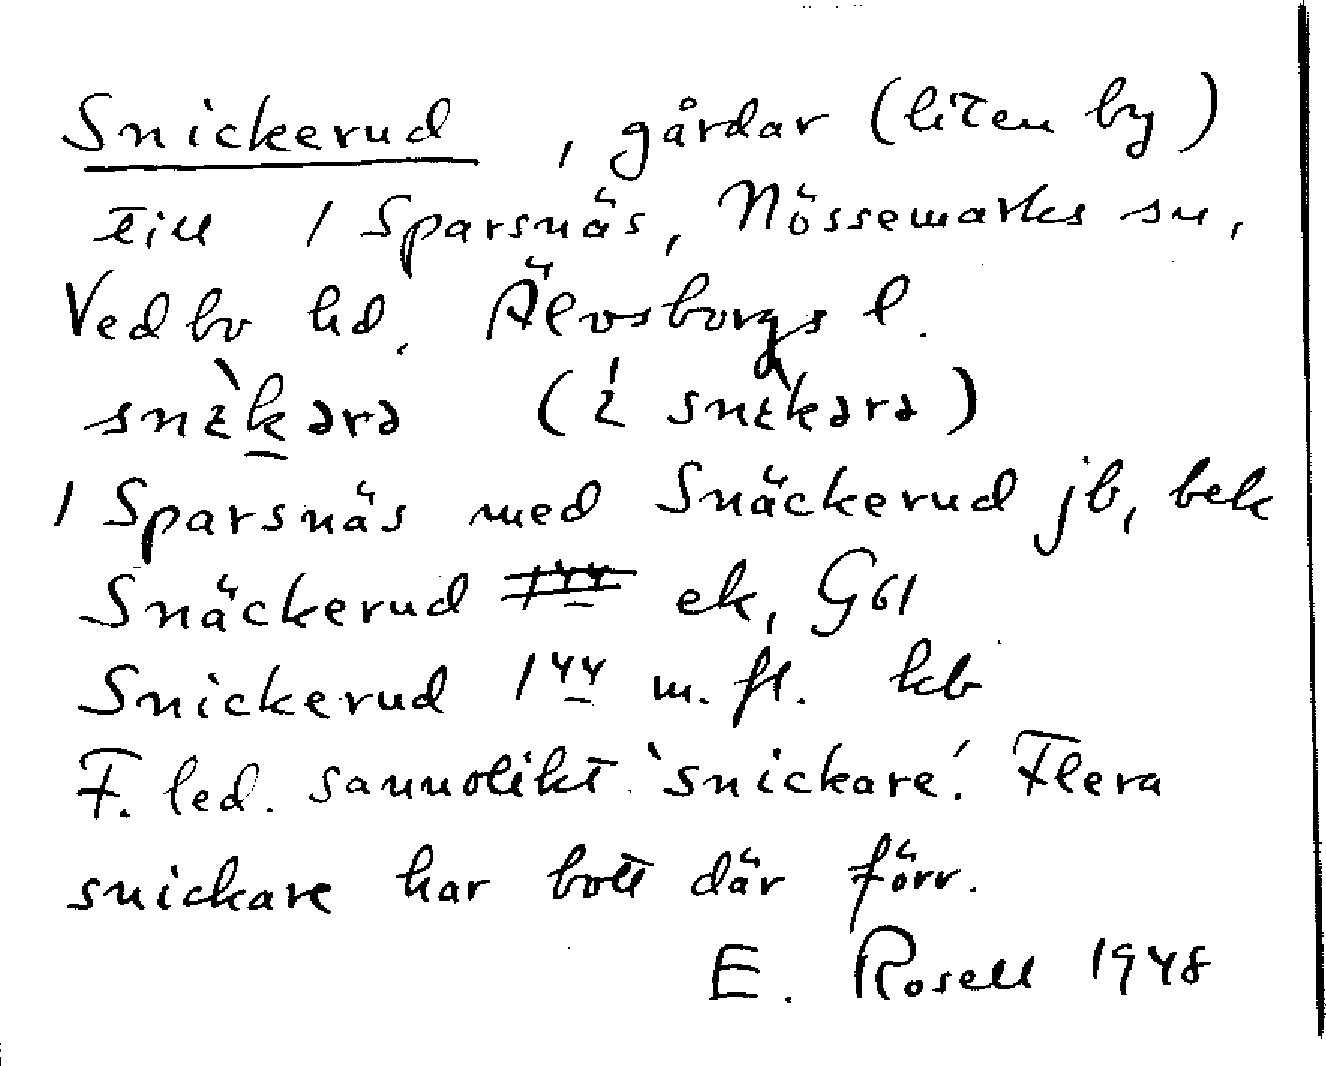 Snickerud, gårdar (liten by)
till 1 Sparsnäs, Nössemarks sn,
Vedbo hd. Älvsborgs l.
snɛ̀kərə (í snɛ̀kərə)
1 Sparsnäs med Snäckerud jb, bek
Snäckerud ek, G61
Snickerud 144 m. fl. kb
F. led. sannolikt 'snickare'. Flera
snickare har bott där förr.
E. Rosell 1948